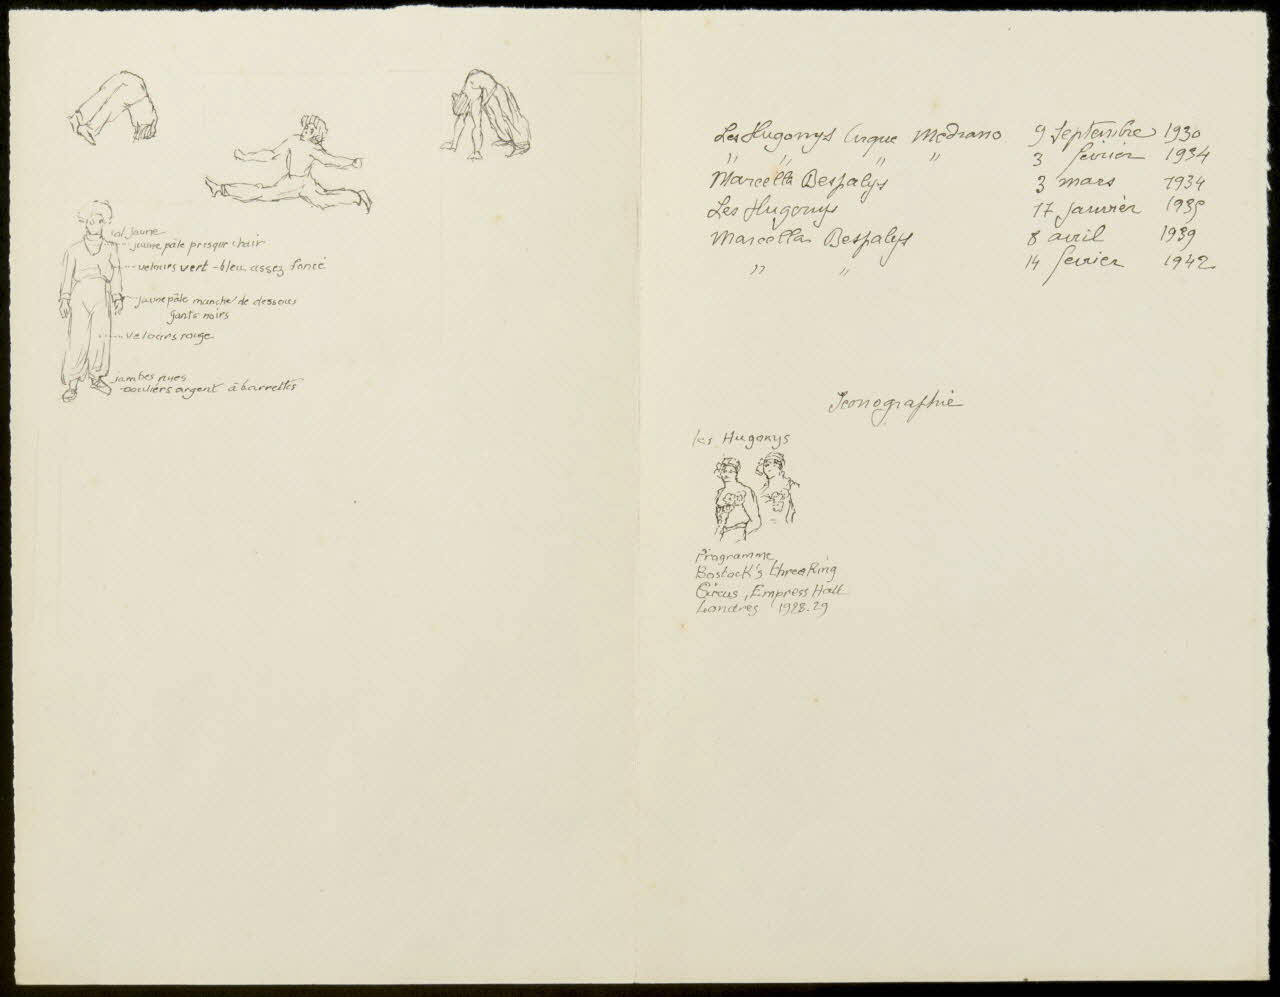 col jaune
jaune pâle presque chair
velours vert-bleu assez foncé
jaune pâle manche de dessous
gants noirs
velours rouge
jambes nues
souliers argent à barrettes
Les Hugonys Cirque Medrano 9 Septembre 1930
" " " " 3 février 1934
Marcella Bespalys 3 mars 1934
Les Hugonys 17 janvier 1935
Marcella Bespalys 8 avril 1939
" " 14 février 1942
Iconographie
les Hugonys
Programme
Bostock's three Ring
Circus, Empress Hall
Londres 1928-29